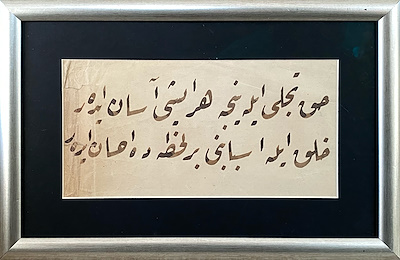 حق تجلی ایله ینجه هر ایشی آسان ایدر
خلق ایلر اسبابنی بر لحظه ده احسان ایدر